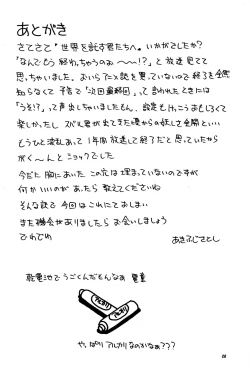 あとがき
さてさて"世界を託す君たちへ"いかがでしたか?
「なんでもう終わっちゃうのぉ〜〜!?」と放送見てて
思っちゃいました。おいらアニメ誌を買っていないので終了を全然
知らなくて予告で「次回最終回」って言われたときには
「うそ!?」って声出しちゃいましたもん。設定もけっこうおもしろくて
楽しかったし スバル君が出てきた頃からの妖しさ全開といい
もうひと波乱あって1年間放送して終了だと思っていたから
がく〜んとショックでした
今だ胸にあいた この穴は埋まっていないのですが
何かいいのがあったら教えてくださいね
そんな訳で今回はこれにておしまい
また機会がありましたらお会いしましょう
でわでわ
あきふじさとし
乾電池でうごくんだもんなぁ 電童
アルカリ
アルカリ
やっぱり アルカリなのかなぁ???